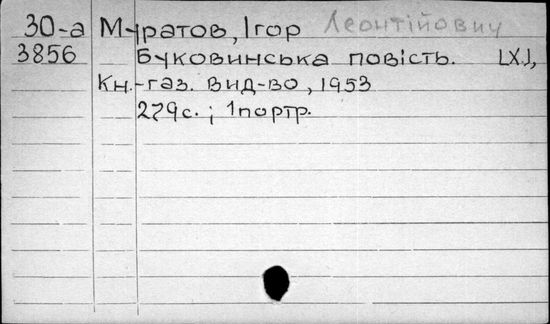 30-а Муратов, Ігор Леонтійович
3856 Буковинська повість. [X.],
Кн.-газ. вид-во, 1953
279с. ; 1портр.